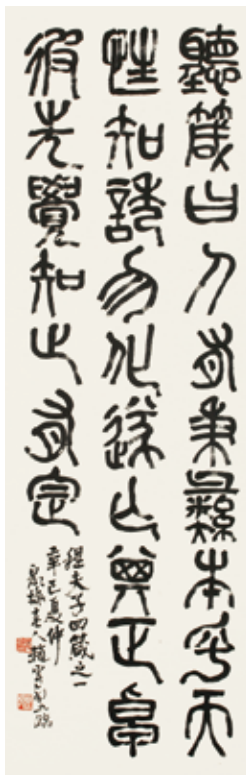 聽箴曰人有秉彝本乎天
性知誘勿化遂亡其正卓
彼先覺知止有定
程夫子四箴之一
辛巳夏仲
老人趙